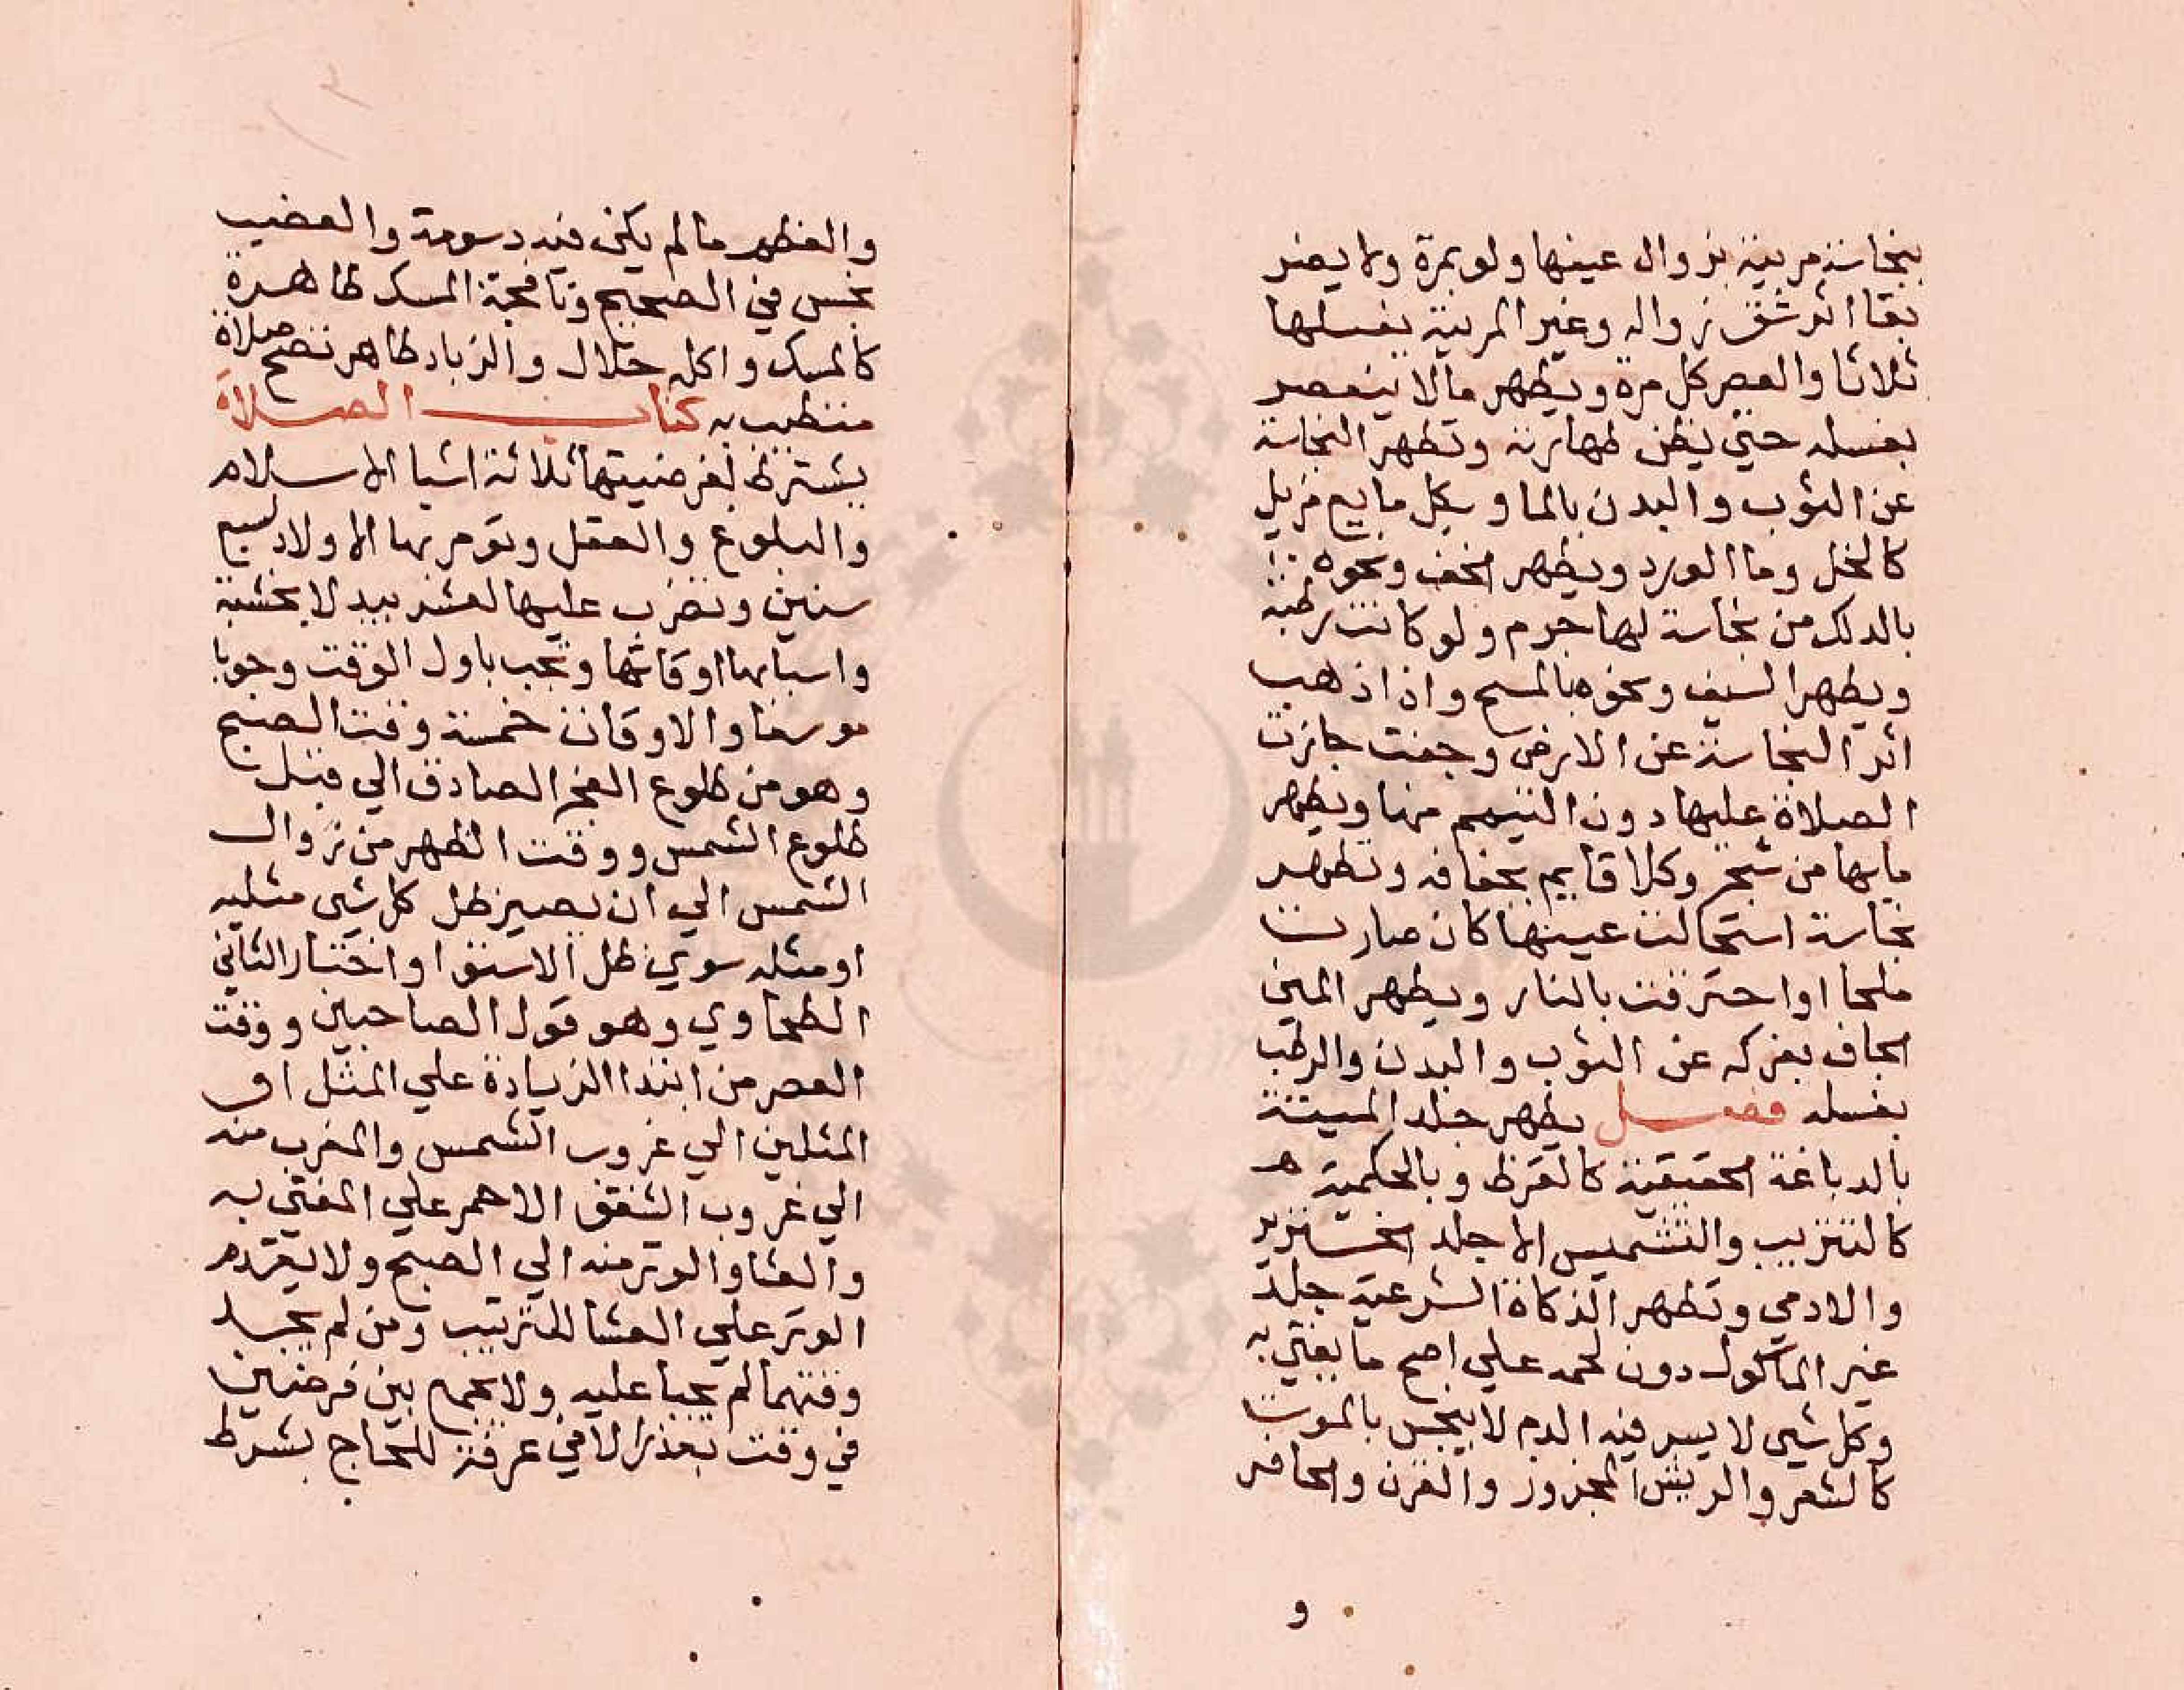 بنجاسة مريية بزوال عينها ولو بمرة ولا يضر
بقا اثر شق زواله وغير المريية بغسلها
ثلاثا والعصر كل مرة ويطهر مالا ينعصر
بغسله حتي يظن طهارته وتطهر النجاسة
عن الثوب والبدن بالما وبكل مايع مزيل
كالخل وما الورد ويطهر الخف ونحوه
بالدلك من نجاسة لها جرم ولو كانت رطبة
ويطهر السيف ونحوه بالمسح واذا ذهب
اثر النجاسة عن الارض وجفت جازت
الصلاة عليها دون التيمم منها ويطهر
مابها من شجر وكلا قايم بجفافه وتطهر
نجاسة استحالت عينها كان صارت
ملحا اوا حترقت بالنار ويطهر المني
الجاف بفركه عن الثوب والبدن والرطب
بغسله فصل يطهر جلد الميتة
بالدباغة الحقيقية كالقرظ وبالحكمية
كالتتريب والتشميس الا جلد الخنزير
والادمي وتطهر الذكاة الشرعية جلد
غير الماكول دون لحمه علي اصح ما يفتي به
وكل شي لا يسر فيه الدم لا ينجس بالموت
كالشعر والريش المجزوز والقرن والحافر
و
والعظم مالم يكن فيه دسومة والعصب
نجس في الصحيح ونافجة المسك طاهرة
كالمسك واكله حلال والزباد طاهر تصح صلاة
متطيب به كتاب الصلاة
يشترط لفرضيتها ثلاثة اشيا الاسلام
والبلوغ والعقل وتومر بها الاولاد لسبع
سنين وتضرب عليها لعشر بيد لا بخشبة
واسبابها اوقاتها وتجب باول الوقت وجوبا
موسعا والاوقات خمسة وقت الصبح
وهو من طلوع الفجر الصادق الي قبل
طلوع الشمس ووقت الظهر من زوال
الشمس الي ان يصير ظل كل شي مثليه
او مثله سوي ظل الاستوا واختار الثاني
الطحاوي وهو قول الصاحبين ووقت
العصر من ابتدا الزيادة علي المثل او
المثلين الي غروب الشمس والمغرب منه
الي غروب الشفق الاحمر علي المفتي به
والعشا والوتر منه الي الصبح ولا يقدم
الوتر علي العشا للترتيب ومن لم يجد
وقتهما لم يجبا عليه ولا يجمع بين فرضين
في وقت بعذر الا في عرفة للحاج بشرط